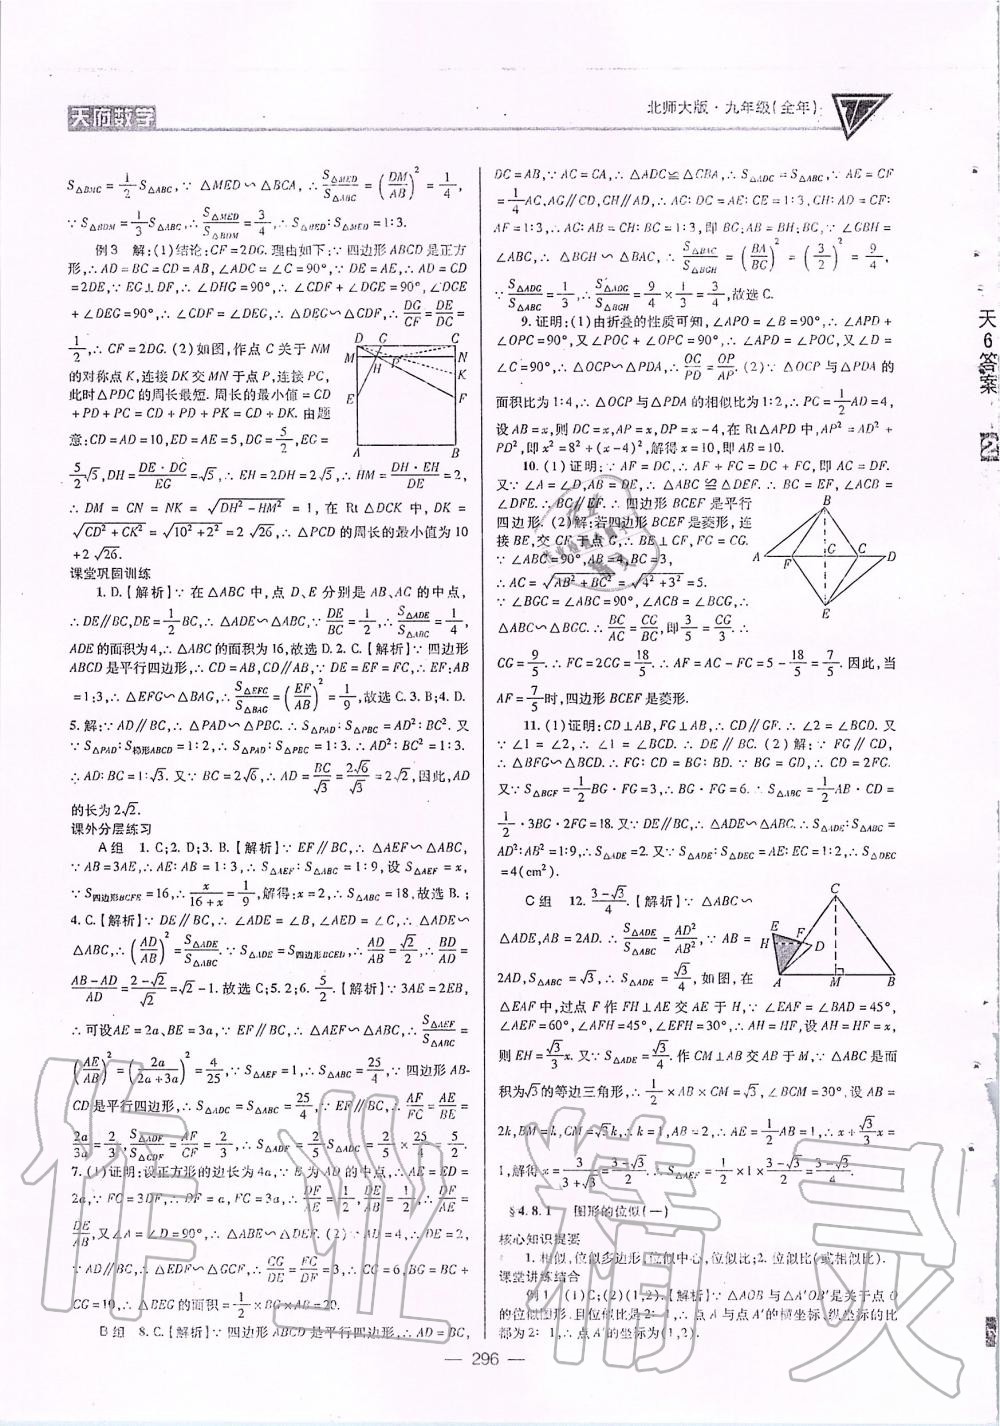 天府数学
北师大版·九年级(全年)
S△BMC=1/2S△ABC,∵ △MED∽△BCA,∴S△MED/S△ABC=(DM/AB)²=1/4,
∵S△BDM=1/3S△ABC,∴S△MED/S△BDM=3/4,∴S△MED:S△BDM=
例3 解:(1)结论:CF=2DG.理由如下:∵四边形ABCD是正方
形,∴AD=BC=CD=AB,∠ADC=∠C=90°,∵DE=AE,∴AD=CD
=2DE,∵EG⊥DF,∴∠DHG=90°,∴∠CDF+∠DGE=90°,∠DGE
+∠DEG=90°,∴∠CDF=∠DEG,∴△DEG∽△CDF,∴DG/CF=DE/DC=
1/2,∴CF=2DG.(2)如图,作点C关于NM
的对称点K,连接DK交MN于点P,连接PC,
此时△PDC的周长最短.周长的最小值=
CD+PD+PC=CD+PD+PK=CD+DK.由题
意:CD=AD=10,ED=AE=5,DG=5/2,EG=
5/2√5,DH=DE·DG/EG=√5,∴EH=2DH=2√5,∴HM=DH·EH/DE=2,
∴DM=CN=NK=√(DH²-HM²)=1,在Rt△DCK中,DK=
√(CD²+CK²)=√(10²+2²)=2√26,∴△PCD的周长的最小值为10
+2√26.
课堂巩固训练
1.D.【解析】∵在△ABC中,点D、E分别是AB、AC的中点,
∴DE∥BC,DE=1/2BC,∴△ADE∽△ABC,∴DE/BC=1/2,∴S△ADE/S△ABC=1/4,
ADE的面积为4,∴△ABC的面积为16,故选D.2.C.【解析】∵四边形
ABCD是平行四边形,∴CD=AB,CD∥AB,∵DE=EF=FC,∴EF:AB
=1:3,∴△EFG∽△BAG,∴S△EFG/S△BAG=(EF/AB)²=1/9,故选C.3.B;4.D.
5.解:∵AD∥BC,∴△PAD∽△PBC.∴S△PAD:S△PBC=AD²:BC².又
∵S△PAD:S梯形ABCD=1:2,∴S△PAD:S△PBC=1:3.∴AD²:BC²=1:3.
∴AD:BC=1:√3.又∵BC=2√6,∴AD=BC/√3=2√6/√3=2√2,因此,AD
的长为2√2.
课外分层练习
A组 1.C;2.D;3.B.【解析】∵EF∥BC,∴△AEF∽△ABC,
∵AB=3AE,∴AE:AB=1:3,∴S△AEF:S△ABC=1:9,设S△AEF=x,
∵S四边形BCFE=16,∴x/(16+x)=1/9,解得:x=2,∴S△ABC=18,故选B.;
4.C.【解析】∵DE∥BC,∴∠ADE=∠B,∠AED=∠C,∴△ADE∽
△ABC,∴(AD/AB)²=S△ADE/S△ABC.∵S△ADE=S四边形BCED,∴AD/AB=√2/2,∴BD/AD=
(AB-AD)/AD=(2-√2)/√2=√2-1.故选C;5.2;6.5/2.【解析】∵3AE=2EB,
∴可设AE=2a、BE=3a,∵EF∥BC,∴△AEF∽△ABC,∴S△AEF/S△ABC=
(AE/AB)²=(2a/(2a+3a))²=4/25,∵S△AEF=1,∴S△ABC=25/4,∵四边形AB-
CD是平行四边形,∴S△ADC=S△ABC=25/4,∵EF∥BC,∴AF/FC=AE/BE=
2a/3a=2/3,∴S△ADF/S△CDF=AF/CF=2/3,∴S△ADF=2/5S△ADC=2/5×25/4=5/2.
7.(1)证明:设正方形的边长为4a,∵E为AD的中点,∴AE=ED=
2a,∵FC=3DF,∴DF=a,FC=3a,∴DF/AE=1/2,DE/AB=1/2,∴DF/AE=
DE/AB,又∠A=∠D=90°,∴△ABE∽△DEF.(2)∵AD=4,∴DE=2,
∵AD∥BC,∴△EDF∽△GCF,∴CG/DE=FC/DF=3,∴CG=6,BG=BC+
CG=10,∴△BEG的面积=1/2×BG×AB=20.
B组 8.C.【解析】∵四边形ABCD是平行四边形,∴AD=BC,
DC=AB,∵AC=CA,∴△ADC≌△CBA,∴S△ADC=S△ABC,∵AE=CF
=1/4AC,AG∥CD,CH∥AD,∴AG:DC=AE:CE=1:3,CH:AD=CF:
AF=1:3,∴AG:AB=CH:BC=1:3,即BG/AB=BH/BC,∵∠GBH=
∠ABC,∴△BGH∽△BAC,∴S△BAC/S△BGH=(BA/BG)²=(3/2)²=9/4,
∵S△ADG/S△ABC=1/3,∴S△ADG/S△BGH=9/4×1/3=3/4,故选C.
9.证明:(1)由折叠的性质可知,∠APO=∠B=90°,∴∠APD+
∠OPC=90°,又∠POC+∠OPC=90°,∴∠APD=∠POC,又∠D=
∠C=90°,∴△OCP∽△PDA,∴OC/PD=OP/AP.(2)∵△OCP与△PDA的
面积比为1:4,∴△OCP与△PDA的相似比为1:2,∴PC=1/2AD=4,
设AB=x,则DC=x,AP=x,DP=x-4,在Rt△APD中,AP²=AD²+
PD²,即x²=8²+(x-4)²,解得x=10,即AB=10.
10.(1)证明:∵AF=DC,∴AF+FC=DC+FC,即AC=DF.
又∵∠A=∠D,AB=DE,∴△ABC≌△DEF.∴BC=EF,∠ACB=
∠DFE.∴BC∥EF.∴四边形BCEF是平行
四边形.(2)解:若四边形BCEF是菱形,连
接BE,交CF于点G,∴BE⊥CF,FG=CG.
∵∠ABC=90°,AB=4,BC=3,
∴AC=√(AB²+BC²)=√(4²+3²)=5.
∵∠BGC=∠ABC=90°,∠ACB=∠BCG,∴
△ABC∽△BGC.∴BC/AC=CG/BC,即3/5=CG/3.∴
CG=9/5,∴FC=2CG=18/5.∴AF=AC-FC=5-18/5=7/5.因此,当
AF=7/5时,四边形BCEF是菱形.
11.(1)证明:CD⊥AB,FG⊥AB,∴CD∥GF.∴∠2=∠BCD.又
∵∠1=∠2,∴∠1=∠BCD.∴DE∥BC.(2)解:∵FG∥CD,
∴△BFG∽△BCD.∴FG:CD=BG:BD.又BD=3BG,∴CD=2FG.
又∵S△BGF=1/2BG·FG=3,∴BG·FG=6.∴S△ABC=1/2AB·CD=
1/2·3BG·2FG=18.又∵DE∥BC,∴△ADE∽△ABC,∴S△ADE:S△ABC=
AD²:AB²=1:9,∴S△ADE=2.又∵S△ADE:S△DEC=AE:EC=1:2,∴S△DEC
=4(cm²).
C组 12.(3-√3)/4.【解析】∵△ABC∽
△ADE,AB=2AD.∴S△ADE/S△ABC=AD²/AB².∵AB=
2AD,S△ABC=√3,∴S△ADE=√3/4,如图,在
△EAF中,过点F作FH⊥AE交AE于H,∵∠EAF=∠BAD=45°,
∠AEF=60°,∠AFH=45°,∠EFH=30°,∴AH=HF,设AH=HF=x,
则EH=√3/3x.又∵S△ADE=√3/4.作CM⊥AB交AB于M,∵△ABC是面
积为√3的等边三角形,∴1/2×AB×CM=√3,∠BCM=30°.设AB=
2k,BM=k,CM=√3k,∴k=1,AB=2,∴AE=1/2AB=1,∴x+√3/3x=
1,解得x=3/(3+√3)=(3-√3)/2.∴S△AEF=1/2×1×(3-√3)/2=(3-√3)/4.
§4.8.1 图形的位似(一)
核心知识提要
1.相似,位似多边形,位似中心,位似比;2.位似比(或相似比).
课堂讲练结合
例1 (1)C;(2)(1,2).【解析】∵△AOB与△A′OB′是关于点O
的位似图形,且位似比是2:1,∴点A与点A′的横坐标、纵坐标的比
都为2:1,∴点A′的坐标为(1,2).
D G C
M H P N
K
E F
A B
B
A F G C D
E
C
E F D
H
A M B
天6答案
2
— 296 —
作业精灵